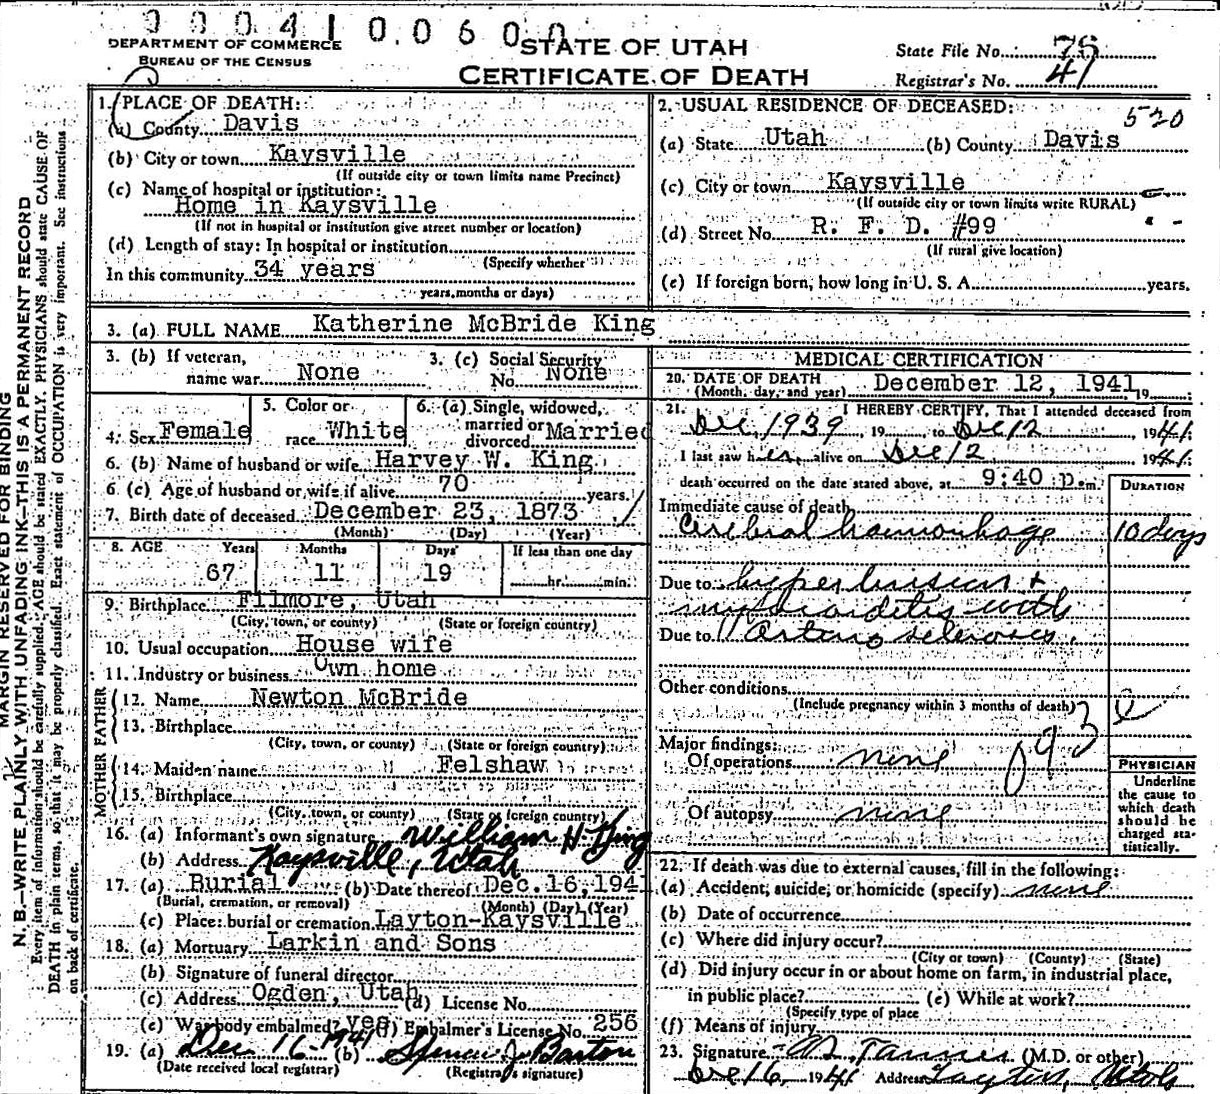 00041006000
DEPARTMENT OF COMMERCE
BUREAU OF THE CENSUS
STATE OF UTAH
CERTIFICATE OF DEATH
State File No. 78
Registrar's No. 41
MARGIN RESERVED FOR BINDING
N. B.—WRITE PLAINLY WITH UNFADING INK—THIS IS A PERMANENT RECORD
Every item of information should be carefully supplied. AGE should be stated EXACTLY. PHYSICIANS should state CAUSE OF
DEATH in plain terms, so that it may be properly classified. Exact statement of OCCUPATION is very important. See instructions
on back of certificate.
1. PLACE OF DEATH:
(a) County Davis
(b) City or town Kaysville
(If outside city or town limits name Precinct)
(c) Name of hospital or institution:
Home in Kaysville
(If not in hospital or institution give street number or location)
(d) Length of stay: In hospital or institution
(Specify whether
In this community 34 years
years, months or days)
2. USUAL RESIDENCE OF DECEASED:
520
(a) State Utah (b) County Davis
(c) City or town Kaysville
(If outside city or town limits write RURAL)
(d) Street No. R. F. D. #99
(If rural give location)
(e) If foreign born, how long in U. S. A. years.
3. (a) FULL NAME Katherine McBride King
3. (b) If veteran,
name war None
3. (c) Social Security
No. None
4. Sex Female
5. Color or
race White
6. (a) Single, widowed,
married or
divorced Married
6. (b) Name of husband or wife Harvey W. King
6 (c) Age of husband or wife if alive 70 years.
7. Birth date of deceased December 23, 1873
(Month) (Day) (Year)
8. AGE Years Months Days If less than one day
67 11 19 hr. min.
9. Birthplace Filmore, Utah
(City, town, or county) (State or foreign country)
10. Usual occupation House wife
11. Industry or business Own home
FATHER
12. Name Newton McBride
13. Birthplace
(City, town, or county) (State or foreign country)
MOTHER
14. Maiden name Felshaw
15. Birthplace
(City, town, or county) (State or foreign country)
16. (a) Informant's own signature William H King
(b) Address Kaysville, Utah
17. (a) Burial (b) Date thereof Dec. 16, 1941
(Burial, cremation, or removal) (Month) (Day) (Year)
(c) Place: burial or cremation Layton-Kaysville
18. (a) Mortuary Larkin and Sons
(b) Signature of funeral director
(c) Address Ogden, Utah (d) License No.
(e) Was body embalmed? yes (f) Embalmer's License No. 256
19. (a) Dec 16-1941 (b) Spencer J. Barton
(Date received local registrar) (Registrar's signature)
MEDICAL CERTIFICATION
20. DATE OF DEATH December 12, 1941, 19
(Month, day, and year)
21. I HEREBY CERTIFY, That I attended deceased from
Dec, 1939, 19 to Dec 12, 1941.
I last saw her alive on Dec 12 1941.
death occurred on the date stated above, at 9:40 p.m.
DURATION
Immediate cause of death
Cerebral haemorrhage 10 days
Due to hypertension +
myocarditis with
Due to Arterio sclerosis.
Other conditions
(Include pregnancy within 3 months of death)
Major findings:
Of operations none
Of autopsy none
PHYSICIAN
Underline
the cause to
which death
should be
charged sta-
tistically.
22. If death was due to external causes, fill in the following:
(a) Accident, suicide, or homicide (specify) none
(b) Date of occurrence
(c) Where did injury occur?
(City or town) (County) (State)
(d) Did injury occur in or about home on farm, in industrial place,
in public place? (e) While at work?
(Specify type of place
(f) Means of injury
23. Signature Tanner (M.D. or other)
Dec 16, 1941 Address Layton, Utah